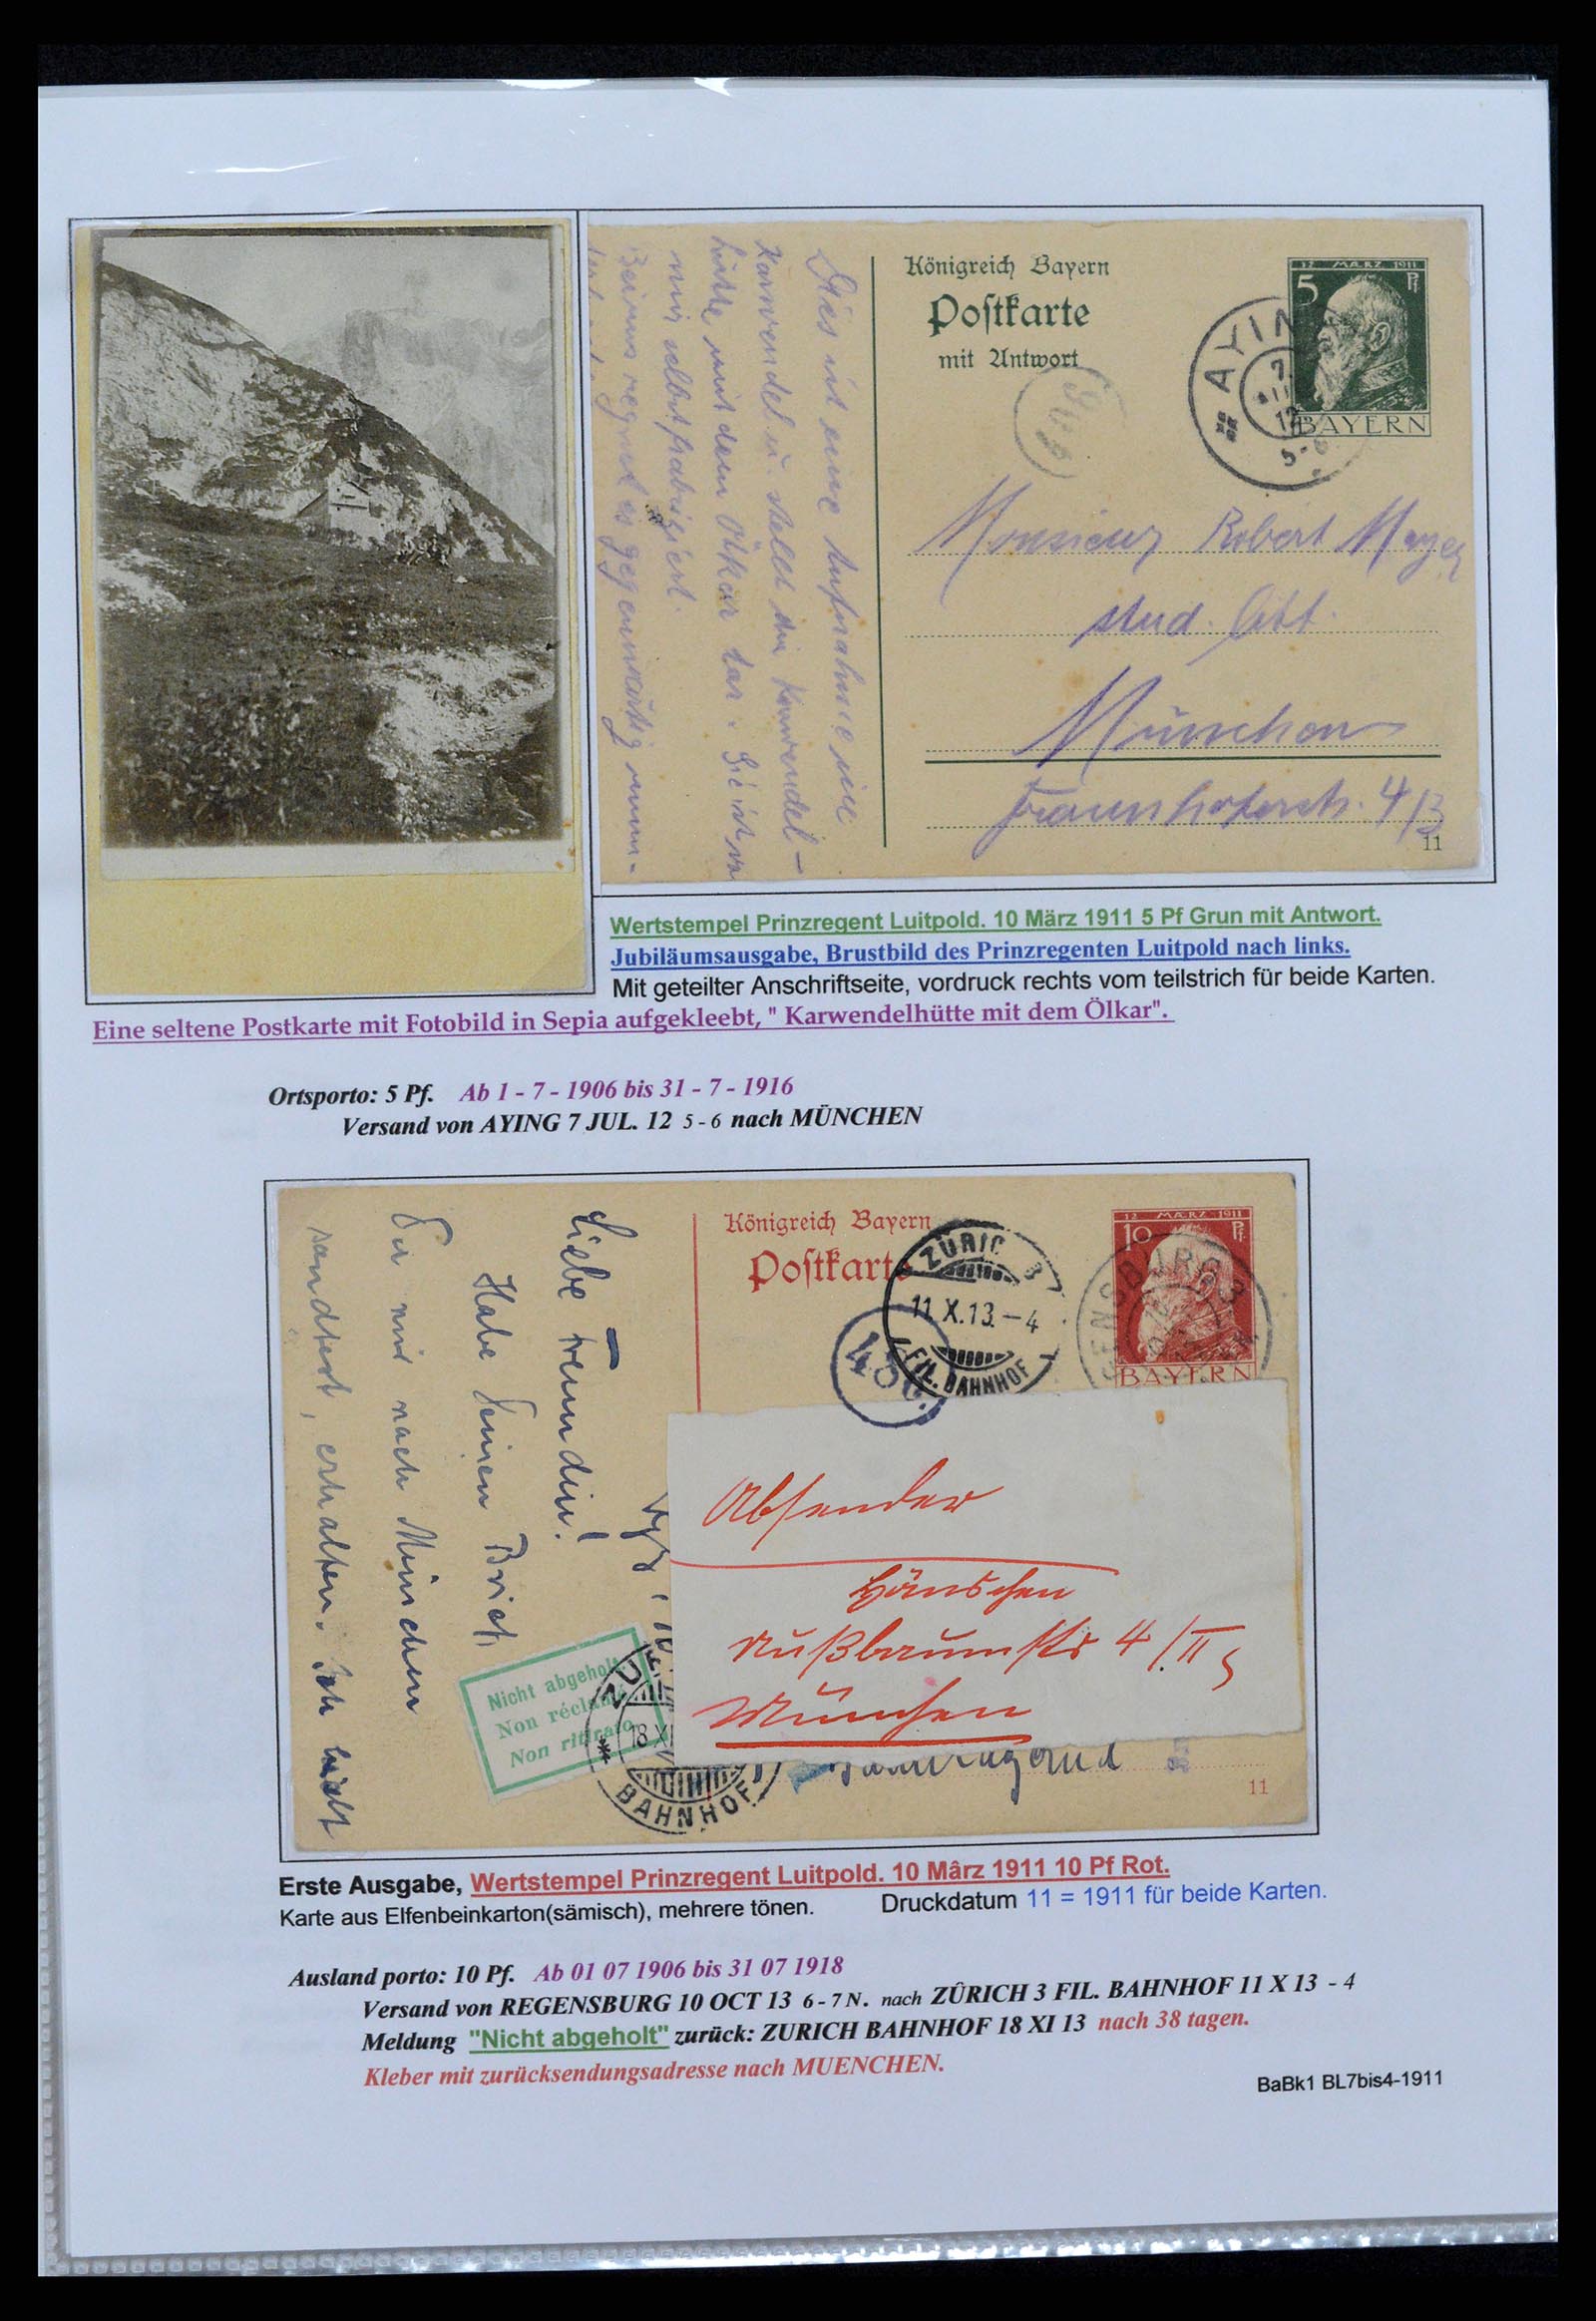 Königreich Bayern
Postkarte
mit Antwort
12 MÄRZ 1911
5 Pf
BAYERN
AYIN
7.
12
5-6
Monsieur Robert Mayer
stud. litt.
München
Fraunhoferstr. 4/3
11
Dies ist eine Aufnahme im
Karwendel u. stellt die Karwendel-
hütte mit dem Ölkar dar. Sie ist von
mir selbst fabriziert.
regnet es gegenwärtig
Wertstempel Prinzregent Luitpold. 10 März 1911 5 Pf Grun mit Antwort.
Jubiläumsausgabe, Brustbild des Prinzregenten Luitpold nach links.
Mit geteilter Anschriftseite, vordruck rechts vom teilstrich für beide Karten.
Eine seltene Postkarte mit Fotobild in Sepia aufgekleebt, " Karwendelhütte mit dem Ölkar".
Ortsporto: 5 Pf. Ab 1 - 7 - 1906 bis 31 - 7 - 1916
Versand von AYING 7 JUL. 12 5 - 6 nach MÜNCHEN
Königreich Bayern
Postkarte
12 MÄRZ 1911
10 Pf.
BAYERN
ZÜRIC 3
11.X.13.–4
FIL. BAHNHOF
ENSBURG 3
Liebe Freundin!
Habe Deinen Brief,
Du mir nach München
sandtest, erhalten. Ich
Absender
Hänschen
Nußbaumstr 4/II
München
Nicht abgeholt
Non réclamé
Non ritirato
ZÜR
18 XI
BAHNHOF
11
Erste Ausgabe, Wertstempel Prinzregent Luitpold. 10 Mârz 1911 10 Pf Rot.
Karte aus Elfenbeinkarton(sämisch), mehrere tönen. Druckdatum 11 = 1911 für beide Karten.
Ausland porto: 10 Pf. Ab 01 07 1906 bis 31 07 1918
Versand von REGENSBURG 10 OCT 13 6 - 7 N. nach ZÛRICH 3 FIL. BAHNHOF 11 X 13 - 4
Meldung "Nicht abgeholt" zurück: ZURICH BAHNHOF 18 XI 13 nach 38 tagen.
Kleber mit zurücksendungsadresse nach MUENCHEN.
BaBk1 BL7bis4-1911